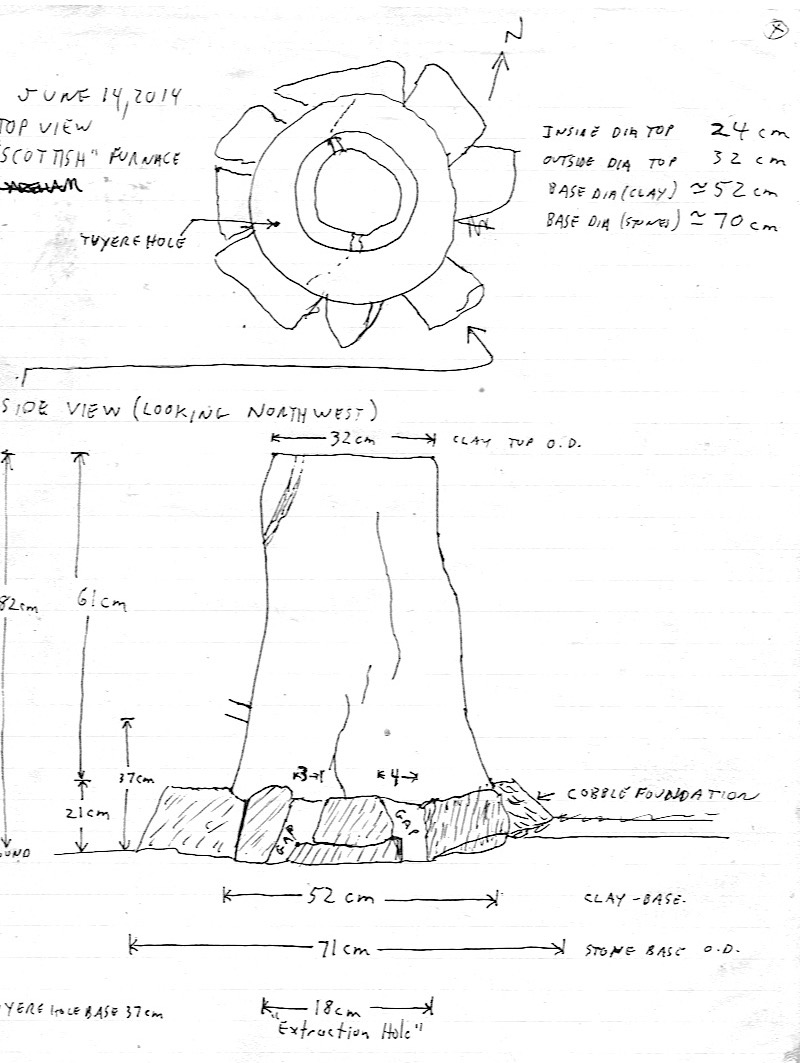 N
JUNE 14, 2014
TOP VIEW
"SCOTTISH" FURNACE
TUYERE HOLE
INSIDE DIA TOP 24 cm
OUTSIDE DIA TOP 32 cm
BASE DIA (CLAY) ≈ 52 cm
BASE DIA (STONES) ≈ 70 cm
SIDE VIEW (LOOKING NORTHWEST)
32cm CLAY TOP O.D.
82cm
61cm
37cm
21cm
3
4
GAP
GAP
COBBLE FOUNDATION
OUND
52 cm CLAY-BASE.
71cm STONE BASE O.D.
UYERE HOLE BASE 37cm
18cm
"Extraction Hole"